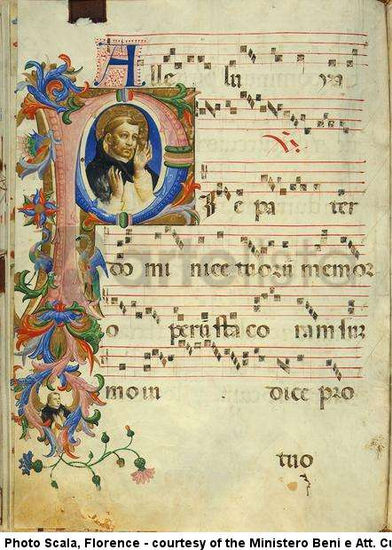 A lle lu ya
P I e pa ter
do mi nice tuorū memor
o perū sta co ram sum
mo iu dice pro
tuo
Photo Scala, Florence - courtesy of the Ministero Beni e Att. Cu